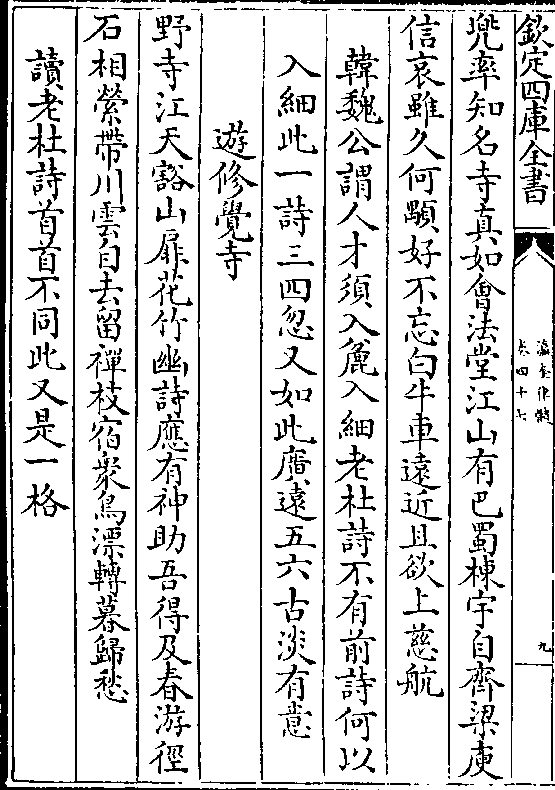 欽定四庫全書
瀛奎律髓
卷四十七
九
兜率知名寺真如㑹法堂江山有巴蜀棟宇自齊梁庾
信哀雖久何顒好不忘白牛車遠近且欲上慈航
韓魏公謂人才須入麄入細老杜詩不有前詩何以
入細此一詩三四忽又如此廣遠五六古淡有意
遊修覺寺
野寺江天豁山扉花竹幽詩應有神助吾得及春游徑
石相縈帶川雲自去留禪枝宿衆鳥漂轉暮歸愁
讀老杜詩首首不同此又是一格